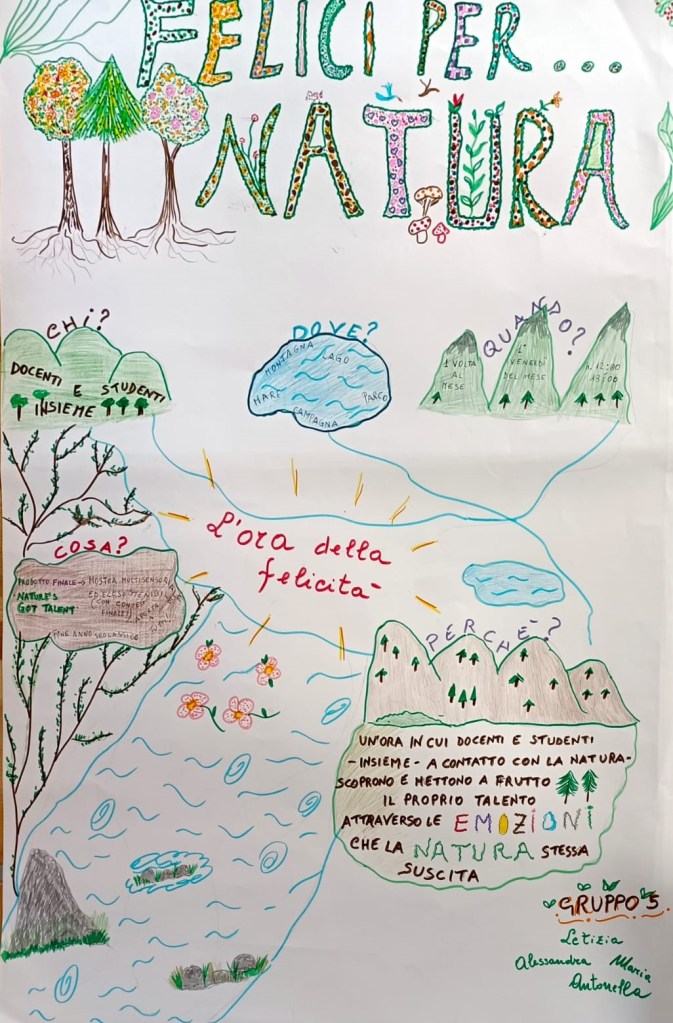 FELICI PER...
NATURA
CHI?
DOCENTI E STUDENTI
INSIEME
DOVE?
MONTAGNA
LAGO
MARE
PARCO
CAMPAGNA
QUANDO?
1 VOLTA
AL
MESE
1°
VENERDÌ
DEL MESE
h. 12:00
13:00
L'ora della
felicità
COSA?
PRODOTTO FINALE → MOSTRA MULTISENSOR
NATURE'S
GOT TALENT
(CON CONTEST
FINALE)
FINE ANNO SCOLASTICO
PERCHÈ?
UN'ORA IN CUI DOCENTI E STUDENTI
-INSIEME- A CONTATTO CON LA NATURA-
SCOPRONO E METTONO A FRUTTO
IL PROPRIO TALENTO
ATTRAVERSO LE EMOZIONI
CHE LA NATURA STESSA
SUSCITA
GRUPPO 5
Letizia
Alessandra Maria
Antonella